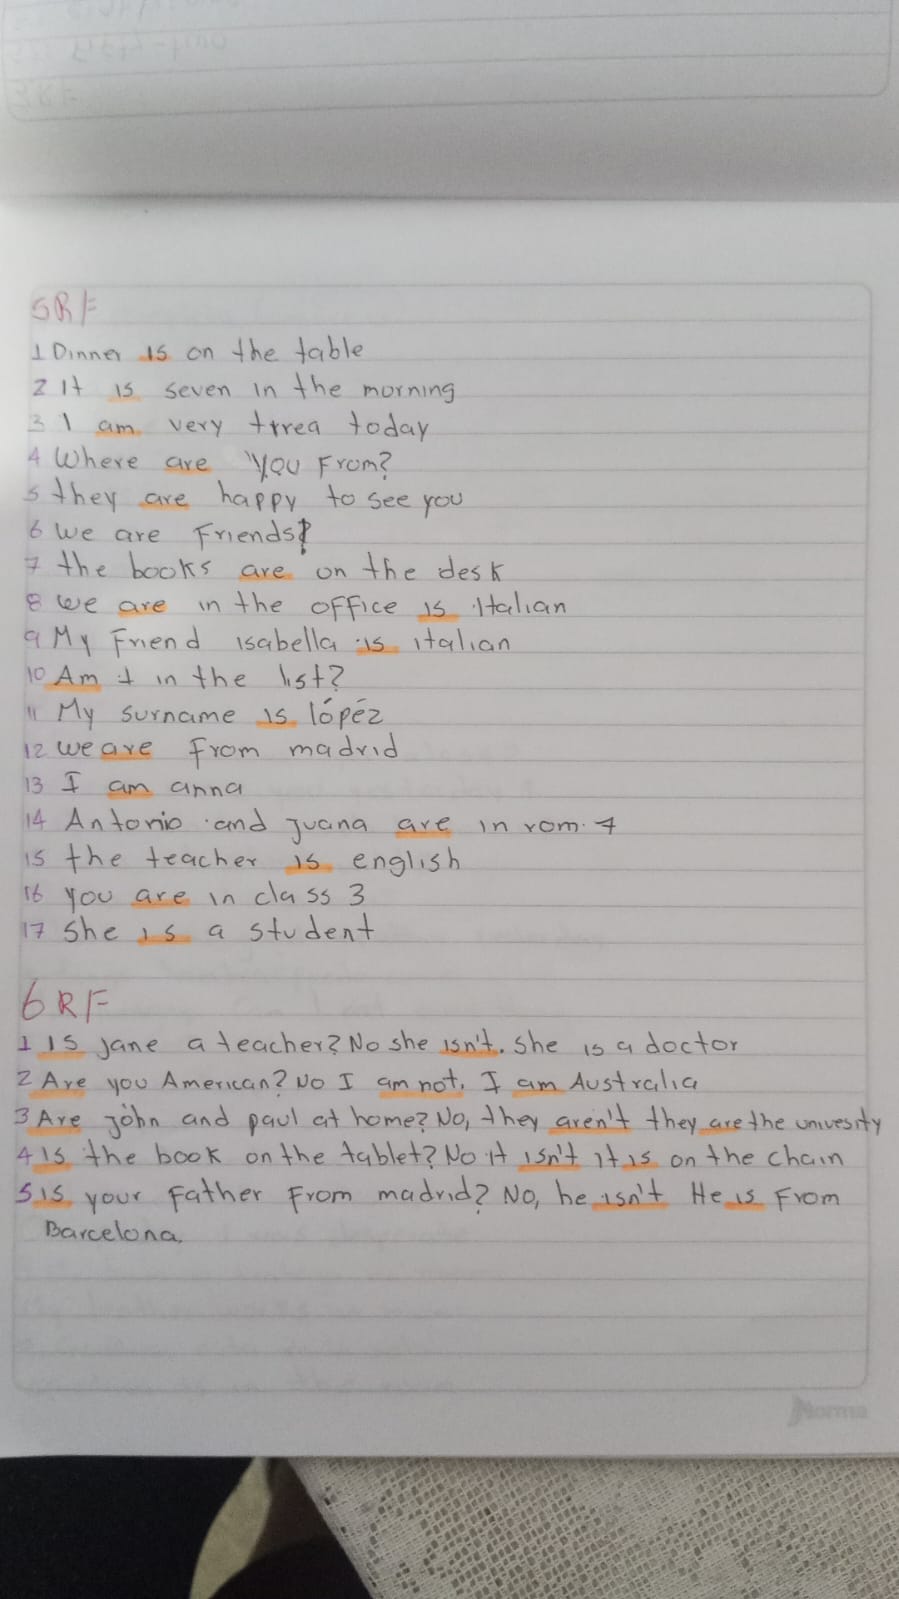 5RF
1 Dinner is on the table
2 It is seven in the morning
3 I am very tirea today
4 Where are you From?
5 they are happy to see you
6 we are Friends?
7 the books are on the desk
8 we are in the office is Italian
9 My Friend isabella is italian
10 Am I in the list?
11 My surname is lópéz
12 we are from madrid
13 I am anna
14 Antonio and juana are in rom. 7
15 the teacher is english
16 you are in class 3
17 She is a student
6RF
1 Is jane a teacher? No she isn't. She is a doctor
2 Are you American? No I am not. I am Australia
3 Are john and paul at home? No, they aren't they are the univesity
4 Is the book on the tablet? No it isn't it is on the chain
5 is your father From madrid? No, he isn't He is From
Barcelona.
Norma